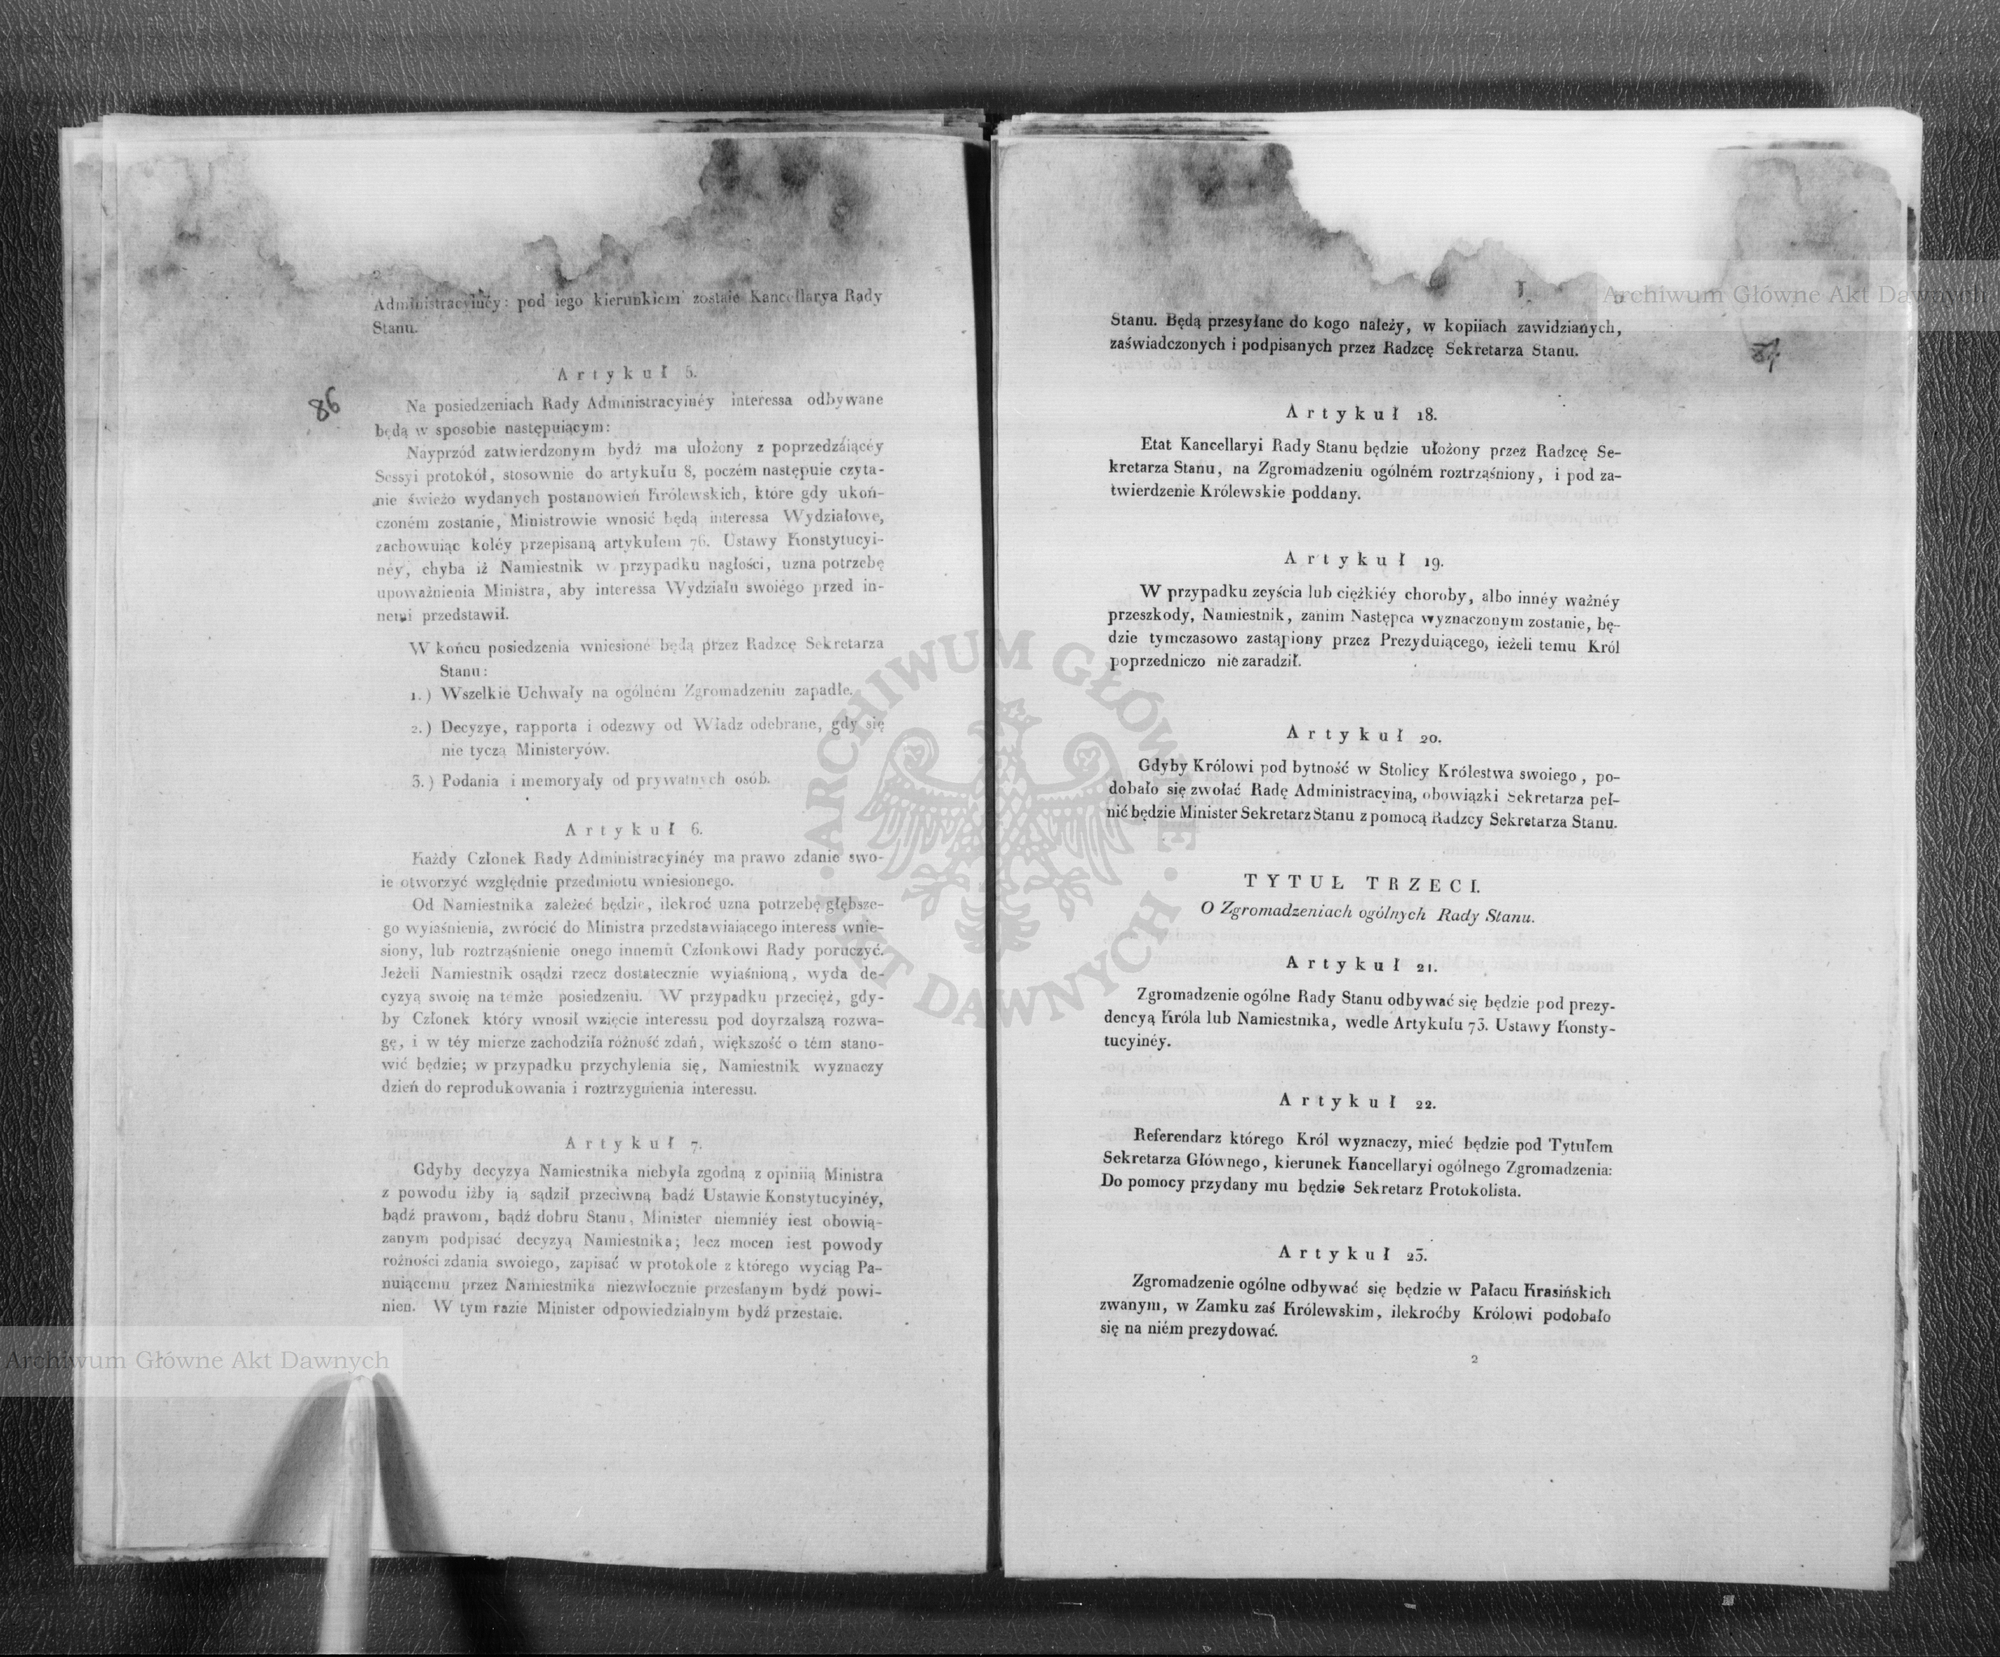 Administracyinéy: pod iego kierunkiem zostaie Kancellarya Rady
Stanu.
Artykuł 5.
86
Na posiedzeniach Rady Administracyinéy interessa odbywane
będą w sposobie następuiącym:
Nayprzód zatwierdzonym bydź ma ułożony z poprzedzaiącéy
Sessyi protokół, stosownie do artykułu 8, poczém następuie czyta-
nie świeżo wydanych postanowień Królewskich, które gdy ukoń-
czoném zostanie, Ministrowie wnosić będą interessa Wydziałowe,
zachowuiąc koléy przepisaną artykułem 76. Ustawy Konstytucyi-
néy, chyba iż Namiestnik w przypadku nagłości, uzna potrzebę
upoważnienia Ministra, aby interessa Wydziału swoiégo przed in-
nemi przedstawił.
W końcu posiedzenia wniesione będą przez Radzcę Sekretarza
Stanu:
1.) Wszelkie Uchwały na ogólném Zgromadzeniu zapadłe.
2.) Decyzye, rapporta i odezwy od Władz odebrane, gdy się
nie tyczą Ministeryów.
3.) Podania i memoryały od prywatnych osób.
Artykuł 6.
Każdy Członek Rady Administracyinéy ma prawo zdanie swo-
ie otworzyć względnie przedmiotu wniesionego.
Od Namiestnika zależeć będzie, ilekroć uzna potrzebę głębsze-
go wyiaśnienia, zwrócić do Ministra przedstawiaiącego interess wnie-
siony, lub roztrząśnienie onego innemu Członkowi Rady poruczyć.
Jeżeli Namiestnik osądzi rzecz dostatecznie wyiaśnioną, wyda de-
cyzyą swoię na temże posiedzeniu. W przypadku przecięż, gdy-
by Członek który wnosił wzięcie interessu pod doyrzalszą rozwa-
gę, i w téy mierze zachodziła różność zdań, większość o tém stano-
wić będzie; w przypadku przychylenia się, Namiestnik wyznaczy
dzień do reprodukowania i roztrzygnienia interessu.
Artykuł 7.
Gdyby decyzya Namiestnika niebyła zgodną z opiniią Ministra
z powodu iżby ią sądził przeciwną bądź Ustawie Konstytucyinéy,
bądź prawom, bądź dobru Stanu, Minister niemniéy iest obowią-
zanym podpisać decyzyą Namiestnika; lecz mocen iest powody
rożności zdania swoiego, zapisać w protokole z którego wyciąg Pa-
nuiącemu przez Namiestnika niezwłocznie przesłanym bydź powi-
nien. W tym razie Minister odpowiedzialnym bydź przestaie.
Archiwum Główne Akt Dawnych
Archiwum Główne Akt Dawnych
Stanu. Będą przesyłane do kogo należy, w kopiiach zawidzianych,
zaświadczonych i podpisanych przez Radzcę Sekretarza Stanu.
Artykuł 18.
Etat Kancellaryi Rady Stanu będzie ułożony przez Radzcę Se-
kretarza Stanu, na Zgromadzeniu ogólném roztrząśniony, i pod za-
twierdzenie Królewskie poddany.
Artykuł 19.
W przypadku zeyścia lub ciężkiéy choroby, albo innéy ważnéy
przeszkody, Namiestnik, zanim Następca wyznaczonym zostanie, bę-
dzie tymczasowo zastąpiony przez Prezyduiącego, ieżeli temu Król
poprzedniczo nie zaradził.
Artykuł 20.
Gdyby Królowi pod bytność w Stolicy Królestwa swoiego, po-
dobało się zwołać Radę Administracyiną, obowiązki Sekretarza peł-
nić będzie Minister Sekretarz Stanu z pomocą Radzcy Sekretarza Stanu.
TYTUŁ TRZECI.
O Zgromadzeniach ogólnych Rady Stanu.
Artykuł 21.
Zgromadzenie ogólne Rady Stanu odbywać się będzie pod prezy-
dencyą Króla lub Namiestnika, wedle Artykułu 73. Ustawy Konsty-
tucyinéy.
Artykuł 22.
Referendarz którego Król wyznaczy, mieć będzie pod Tytułem
Sekretarza Głównego, kierunek Kancellaryi ogólnego Zgromadzenia:
Do pomocy przydany mu będzie Sekretarz Protokolista.
Artykuł 23.
Zgromadzenie ogólne odbywać się będzie w Pałacu Krasińskich
zwanym, w Zamku zaś Królewskim, ilekroćby Królowi podobało
się na niém prezydować.
2
ARCHIWUM GŁÓWNE AKT DAWNYCH